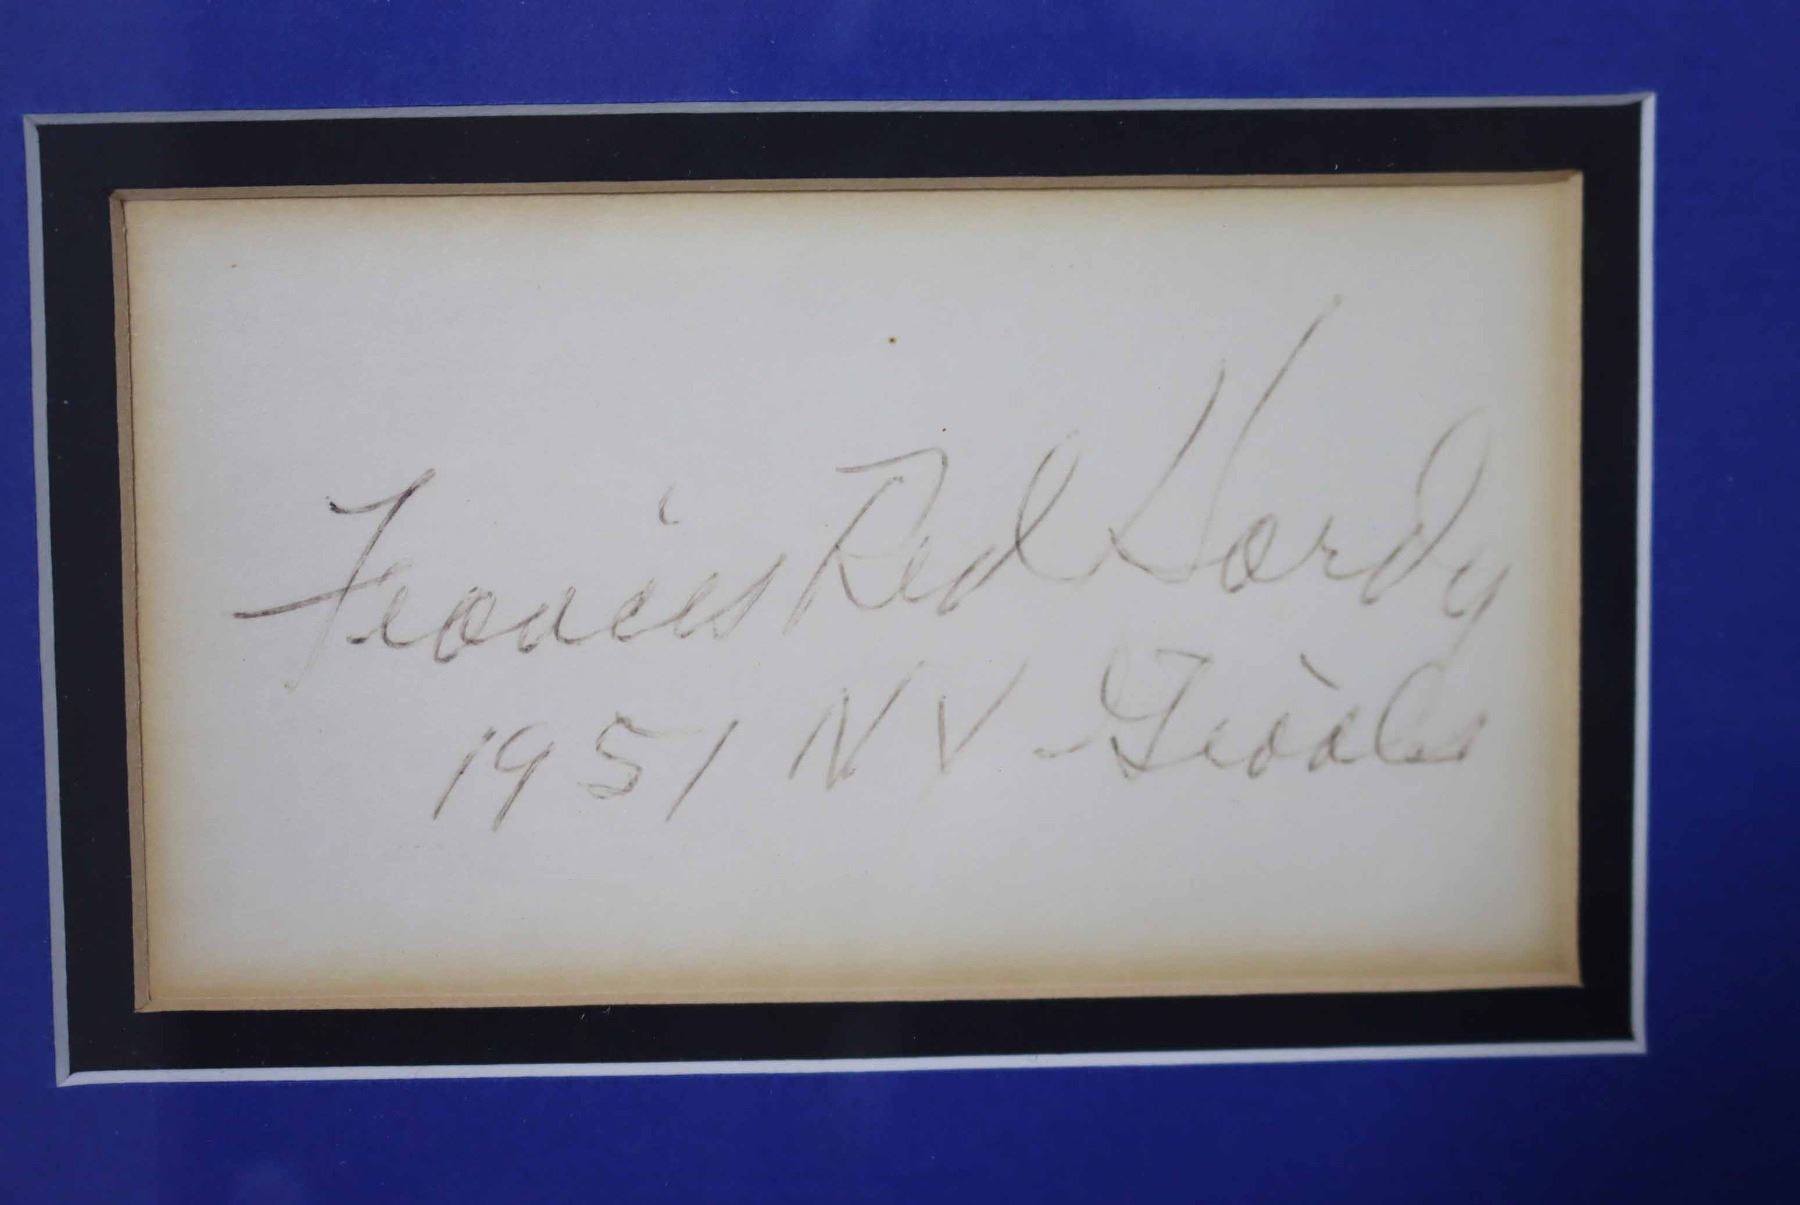 Francis Red Hardy
1951 NY Giants